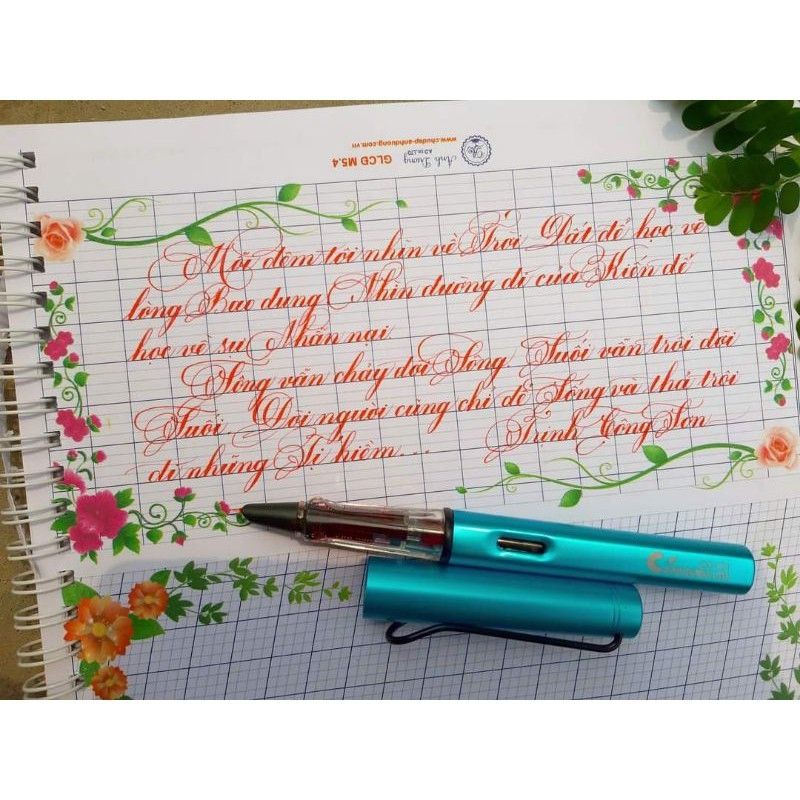 www.chudep-anhduong.com.vn
GLCĐ M5.4
Ánh Dương
Mỗi đêm tôi nhìn về Trời Đất để học về
lòng Bao dung Nhìn đường đi của Kiến để
học về sự Nhẫn nại
Sông vẫn chảy đời Sông Suối vẫn trôi đời
Suối Đời người cũng chỉ để Sống và thả trôi
đi những Tị hiềm...
Trịnh Công Sơn